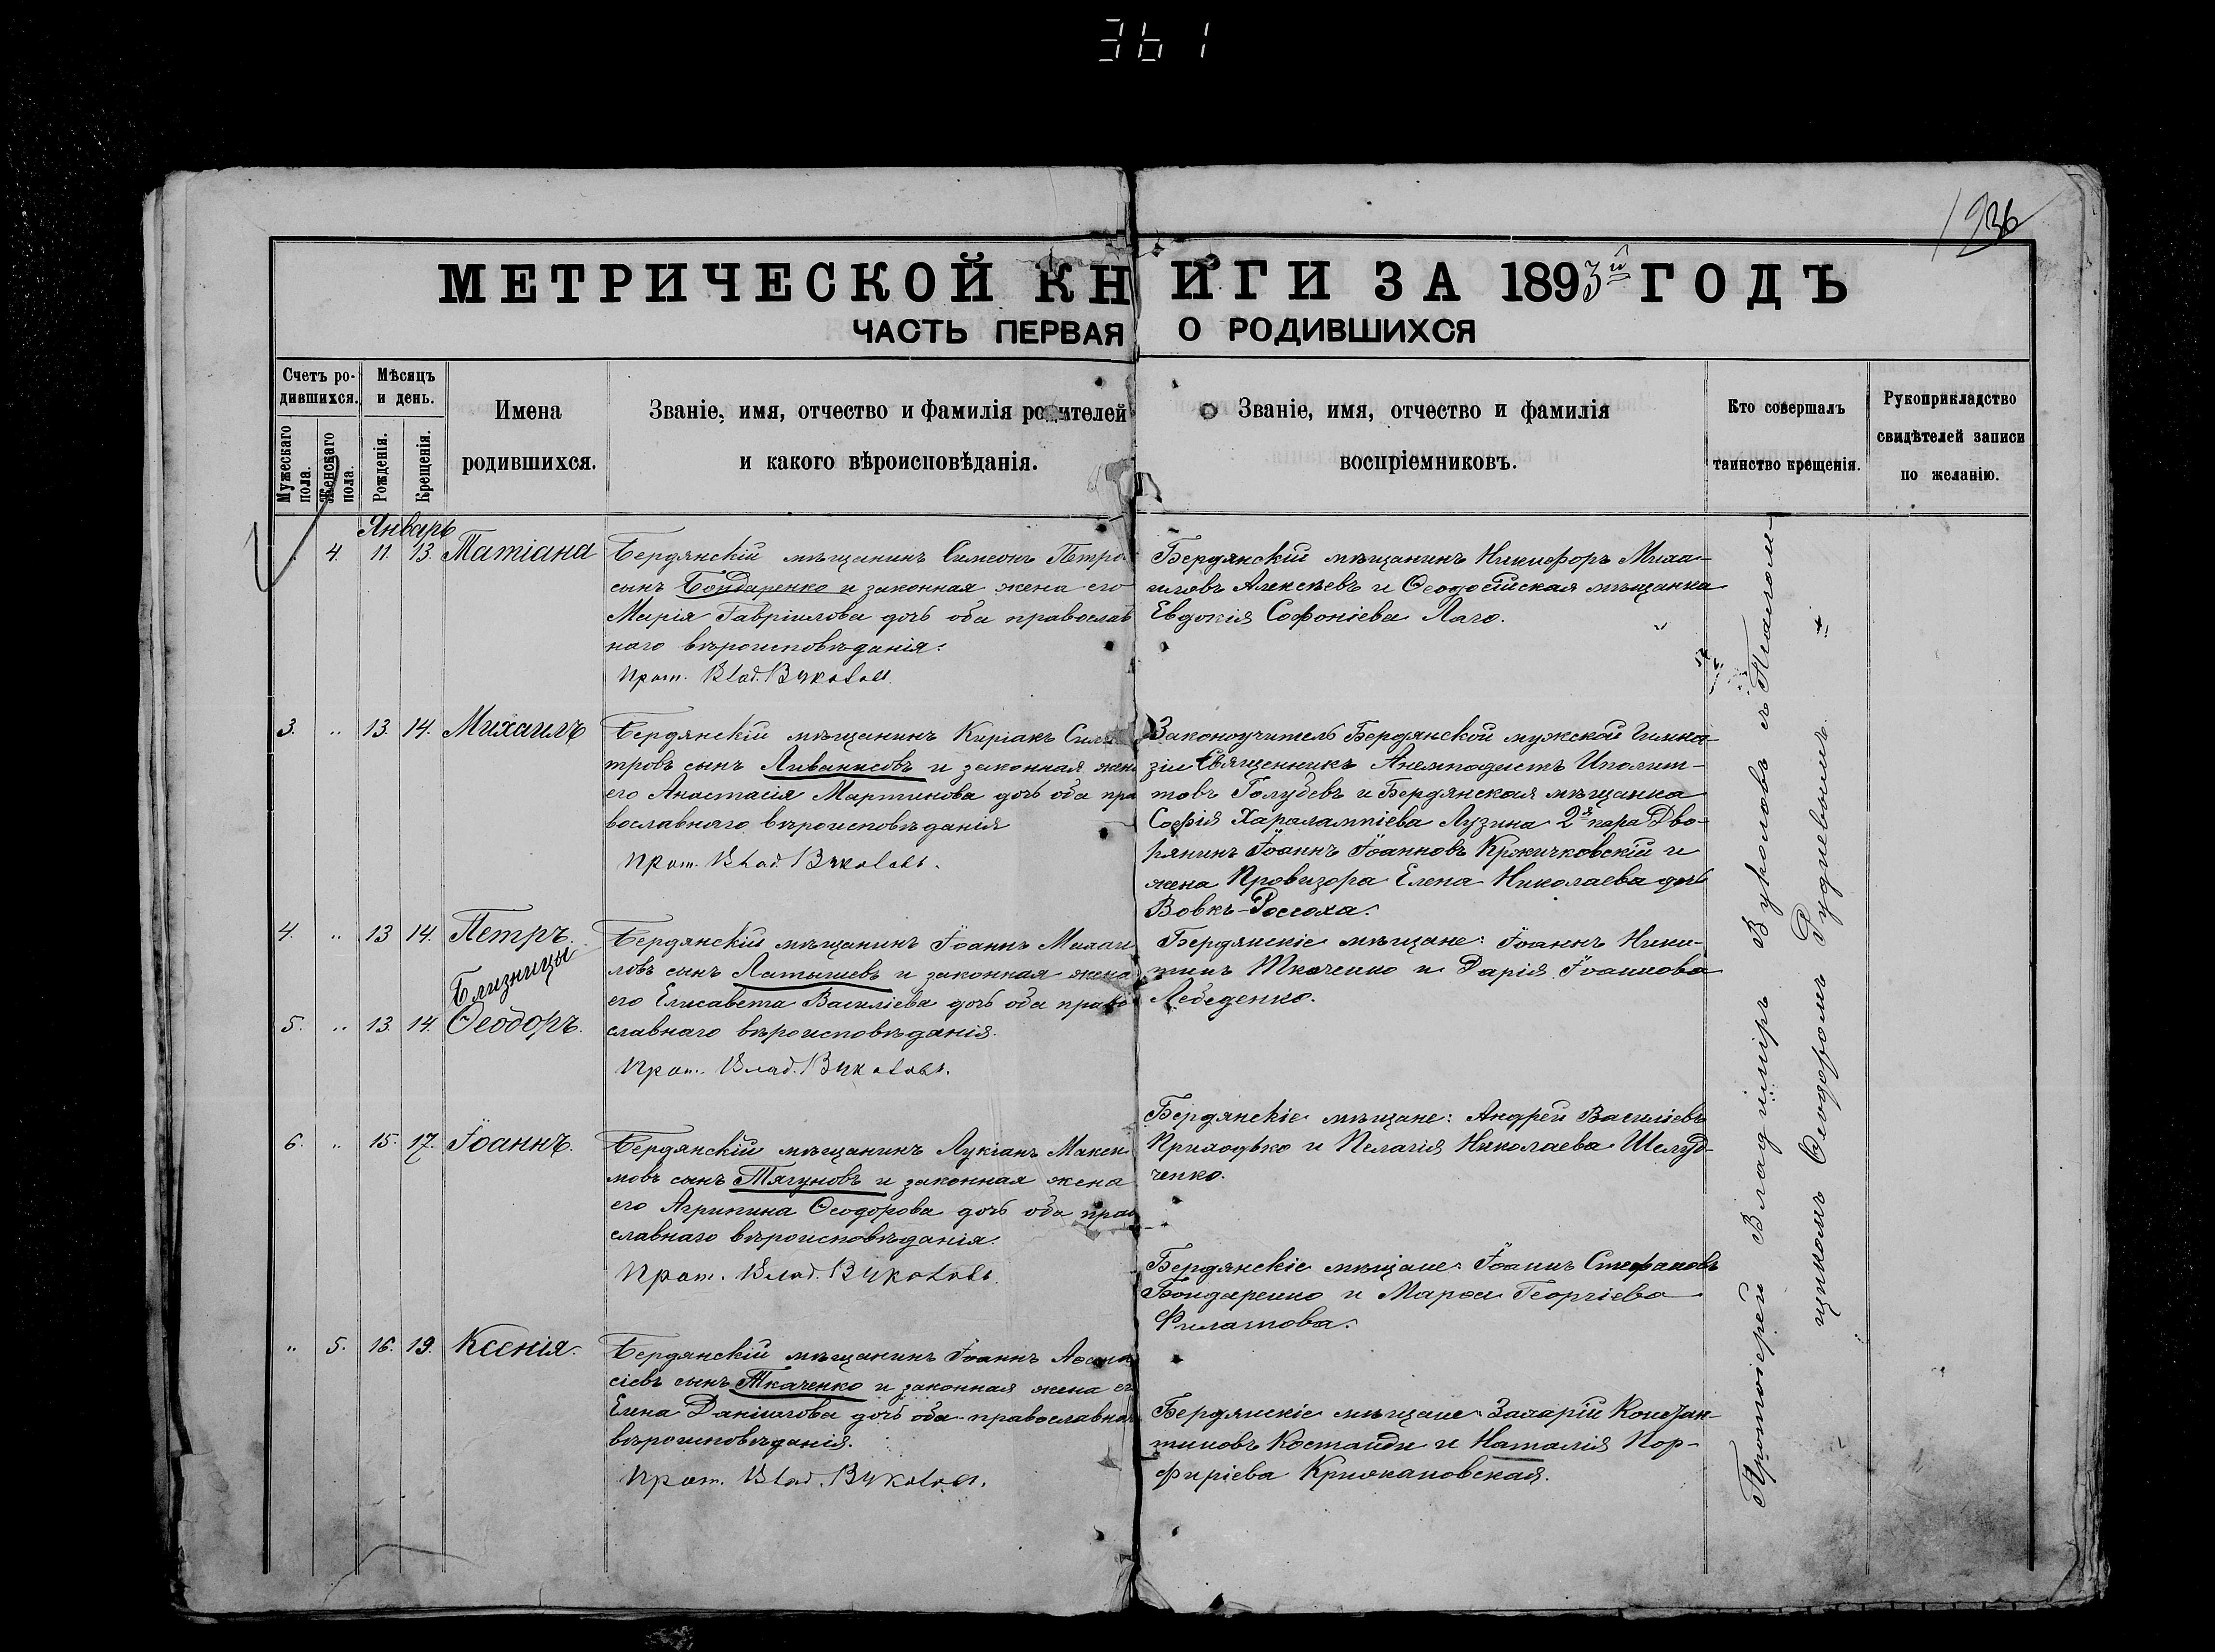 361
236
МЕТРИЧЕСКОЙ КНИГИ ЗА 1893й ГОДЪ
ЧАСТЬ ПЕРВАЯ О РОДИВШИХСЯ
Счетъ ро-
дившихся.
Мужескаго
пола.
Женскаго
пола.
Мѣсяцъ
и день.
Рожденія.
Крещенія.
Имена
родившихся.
Званіе, имя, отчество и фамилія родителей
и какого вѣроисповѣданія.
Званіе, имя, отчество и фамилія
воспріемниковъ.
Кто совершалъ
таинство крещенія.
Рукоприкладство
свидѣтелей записи
по желанію.
Январь
4. 11. 13. Татіана
Бердянскій мѣщанинъ Симеонъ Петро
сынъ Бондаренко и законная жена его
Марія Гавріилова дочь оба православ
наго вѣроисповѣданія.
Прот. Влад. Вуколовъ.
Бердянскій мѣщанинъ Никифоръ Миха-
иловъ Алексѣевъ и Ѳеодосійская мѣщанка
Евдокія Софоніева Лаго.
3. „ 13. 14. Михаилъ
Бердянскій мѣщанинъ Киріакъ
тровъ сынъ Ливанисовъ и законная жен
его Анастасія Мартинова дочь оба пра
вославнаго вѣроисповѣданія
Прот. Влад. Вуколовъ.
Законоучитель Бердянской мужской Гимна-
зіи Священникъ Анемподистъ Иполит-
товъ Голубевъ и Бердянская мѣщанка
Софія Харалампіева Лузина 2я пара Дво-
рянинъ Іоаннъ Іоанновъ Кржичковскій и
жена Провизора Елена Николаева дочь
Вовкъ-Россоха.
4. „ 13 14. Петръ.
Близницы
5. „ 13. 14. Ѳеодоръ.
Бердянскій мѣщанинъ Іоаннъ Михаи
ловъ сынъ Латышевъ и законная жена
его Елисавета Василіева дочь оба право
славнаго вѣроисповѣданія.
Прот. Влад. Вуколовъ.
Бердянскіе мѣщане: Іоаннъ Ники-
тинъ Ткаченко и Дарія Іоаннова
Лебеденко.
6. „ 15. 17. Іоаннъ.
Бердянскій мѣщанинъ Лукіанъ Макси
мовъ сынъ Тягуновъ и законная жена
его Агрипина Ѳеодорова дочь оба прав
славнаго вѣроисповѣданія.
Прот. Влад. Вуколовъ.
Бердянскіе мѣщане: Андрей Василіевъ
Приходько и Пелагія Николаева Шелуд-
ченко.
Бердянскіе мѣщане: Іоаннъ Стефановъ
Бондаренко и Марѳа Георгіева
Филатова.
„ 5. 16. 19. Ксенія.
Бердянскій мѣщанинъ Іоаннъ Аѳана
сіевъ сынъ Ткаченко и законная жена ег
Елена Даніилова дочь оба православна
вѣроисповѣданія.
Прот. Влад. Вуколовъ.
Бердянскіе мѣщане: Захарій Констан-
тиновъ Костанди и Наталія Пор-
фиріева Крижановская.
Протоіерей Владиміръ Вуколовъ съ Псалом-
щикомъ Ѳеодоромъ Рудневымъ.